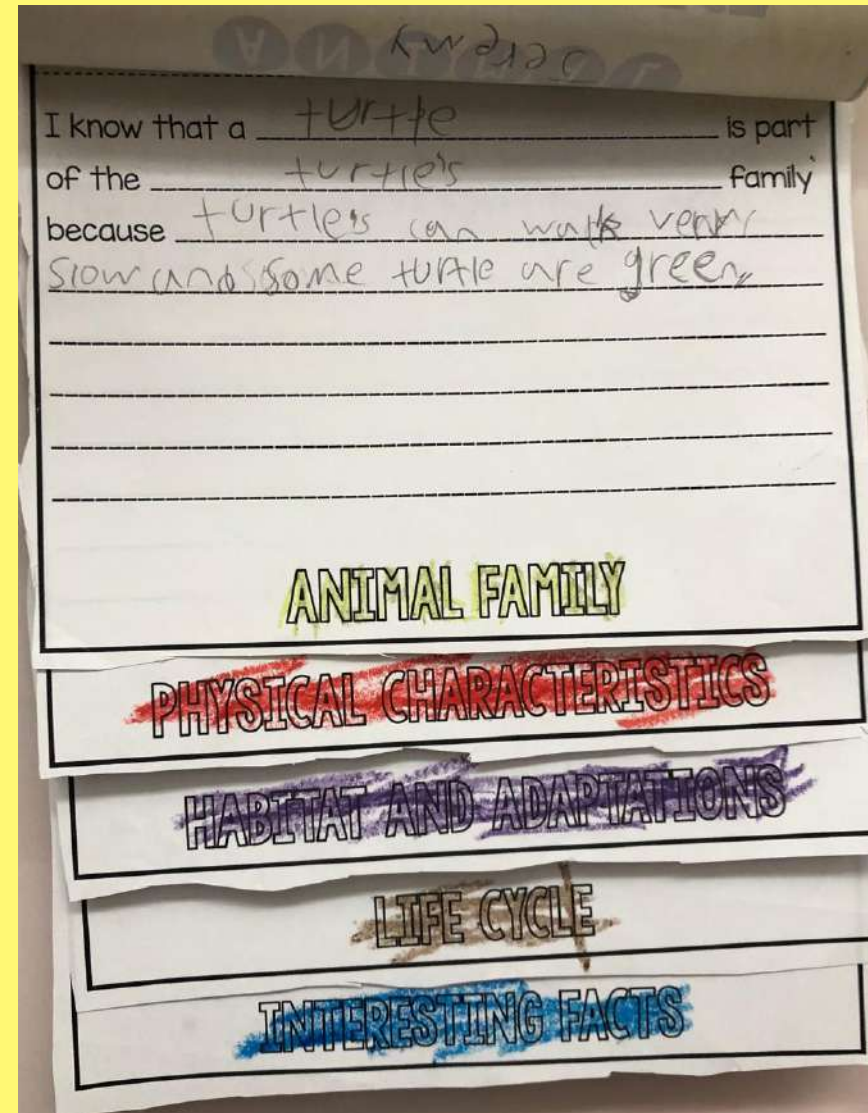 I know that a turtle is part
of the turtle's family
because turtle's can walk very
slow and some turtle are green
ANIMAL FAMILY
PHYSICAL CHARACTERISTICS
HABITAT AND ADAPTATIONS
LIFE CYCLE
INTERESTING FACTS